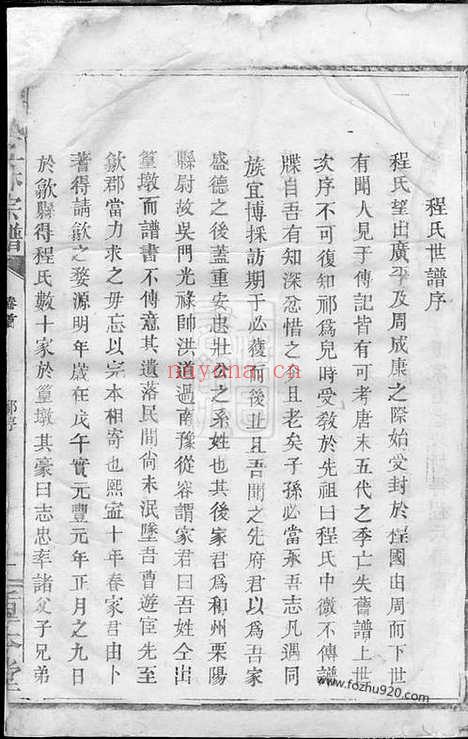 程氏世譜序
程氏望出廣平及周成康之際始受封於程國由周而下世
有聞人見于傳記皆有可考唐末五代之季亡失舊譜上世
次序不可復知祁爲兒時受敎於先祖曰程氏中微不傳譜
牒自吾有知深忿惜之今且老矣子孫必當承吾志凡遇同
族宜博採訪期于必復而後止且吾聞之先府君以爲吾家
盛德之後蓋重安忠壯公之系姓也其後家君爲和州栗陽
縣尉故吳門光祿師洪道過南豫從容謂家君曰吾姓仝出
篁墩而譜書不傳意其遺落民間尙未泯墜吾曹遊宦先至
歙郡當力求之毋忘以完本相寄也熙寍十年春家君由卜
著得請歙之婺源明年歲在戊午實元豐元年正月之九日
於歙縣得程氏數十家於篁墩其豪曰志忠率諸父子兄弟
宗譜
nayona.cn
www.fozhu920.com